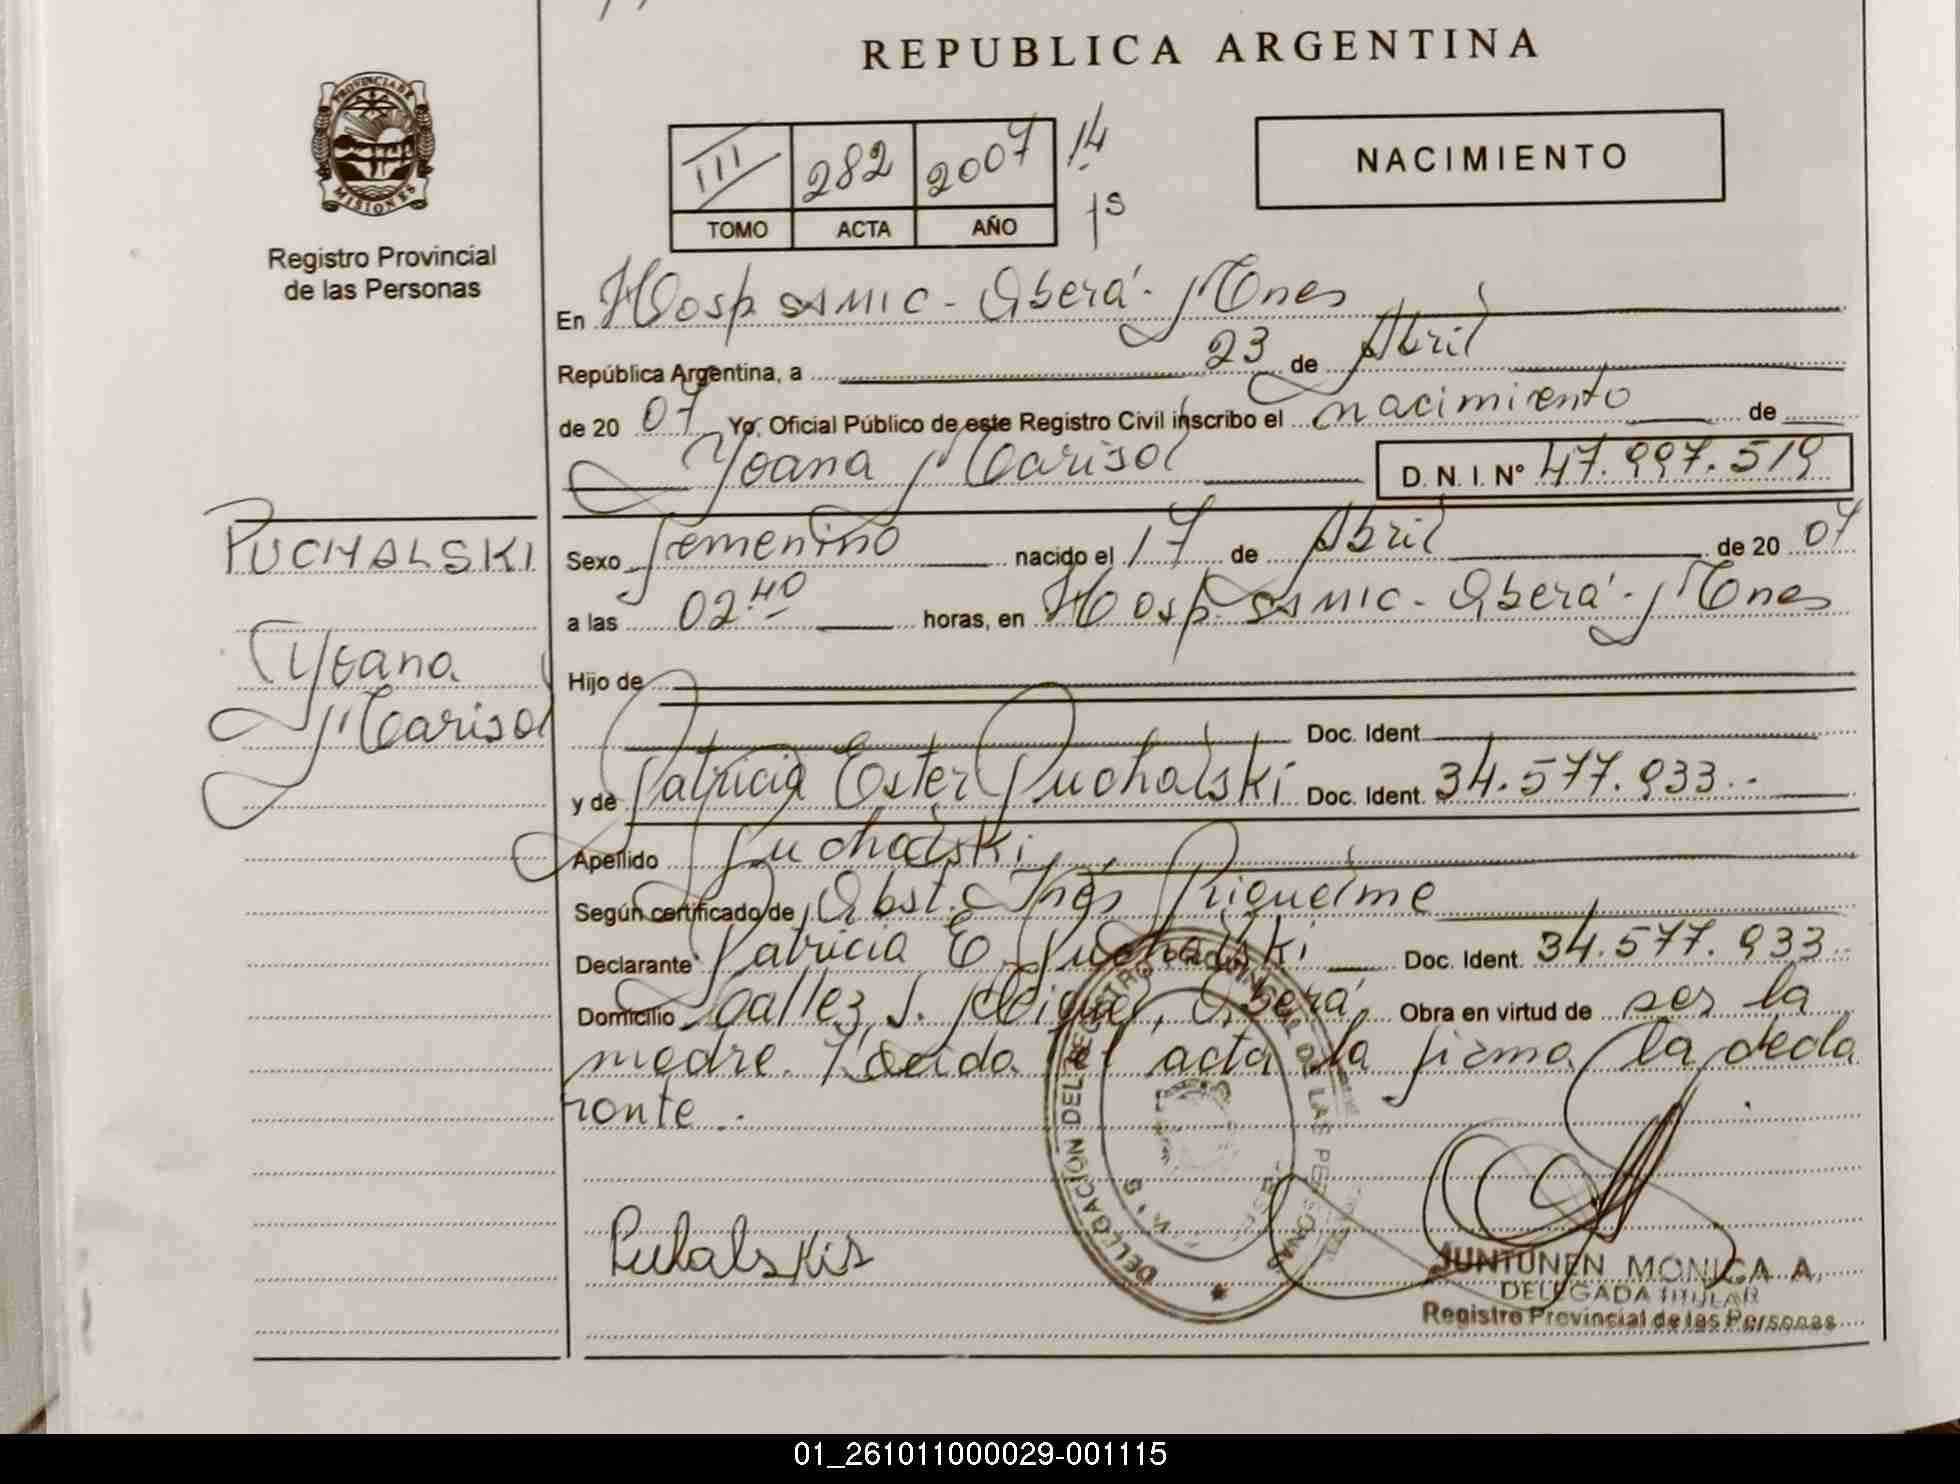 REPUBLICA ARGENTINA
PROVINCIA DE
MISIONES
Registro Provincial
de las Personas
III 282 2007 14
TOMO ACTA AÑO
NACIMIENTO
En Hosp. SAMIC - Oberá - Mnes
República Argentina, a 23 de Abril
de 20 07 Yo, Oficial Público de este Registro Civil inscribo el nacimiento de
Yoana Marisol D. N. I. N° 47.997.519
PUCHALSKI
Yoana
Marisol
Sexo femenino nacido el 17 de Abril de 20 07
a las 02:40 horas, en Hosp. SAMIC - Oberá - Mnes
Hijo de
Doc. Ident.
y de Patricia Ester Puchalski Doc. Ident. 34.577.933.-
Apellido Puchalski
Según certificado de Obst. Inés Riquelme
Declarante Patricia E. Puchalski Doc. Ident. 34.577.933.
Domicilio Oberá, Obra en virtud de ser la
madre. Leida el acta la firma la decla
rante.
DELEGACIÓN DEL REGISTRO PROVINCIAL DE LAS PERSONAS
JUNTUNEN MONICA A.
DELEGADA TITULAR
Registro Provincial de las Personas
01_261011000029-001115